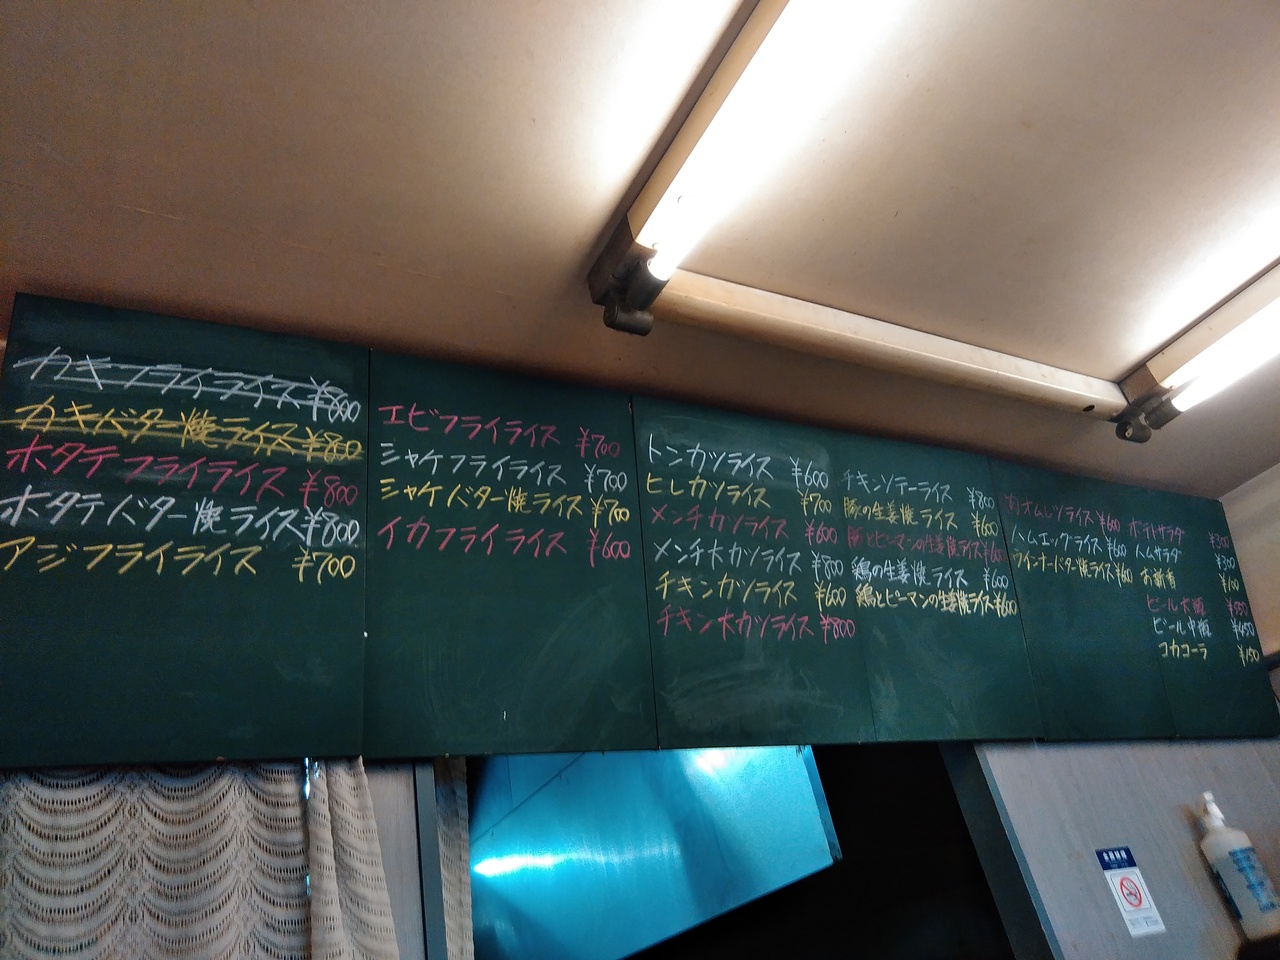 カキフライライス ¥800
カキバター焼ライス ¥800
ホタテフライライス ¥800
ホタテバター焼ライス ¥800
アジフライライス ¥700
エビフライライス ¥700
シャケフライライス ¥700
シャケバター焼ライス ¥700
イカフライライス ¥600
トンカツライス ¥600
ヒレカツライス ¥700
メンチカツライス ¥600
メンチ大カツライス ¥800
チキンカツライス ¥600
チキン大カツライス ¥800
チキンソテーライス ¥800
豚の生姜焼ライス ¥600
豚とピーマンの生姜焼ライス ¥600
鶏の生姜焼ライス ¥600
鶏とピーマンの生姜焼ライス ¥600
肉オムレツライス ¥600
ハムエッグライス ¥600
ウインナーバター焼ライス ¥600
ポテトサラダ ¥300
ハムサラダ ¥300
お新香 ¥100
ビール大瓶
ビール中瓶
コカコーラ ¥150